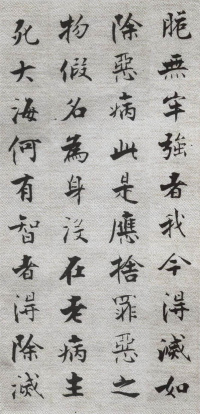 脆無牢強者我今得滅如
除惡病此是應捨罪惡之
物假名為身没在老病生
死大海何有智者得除滅